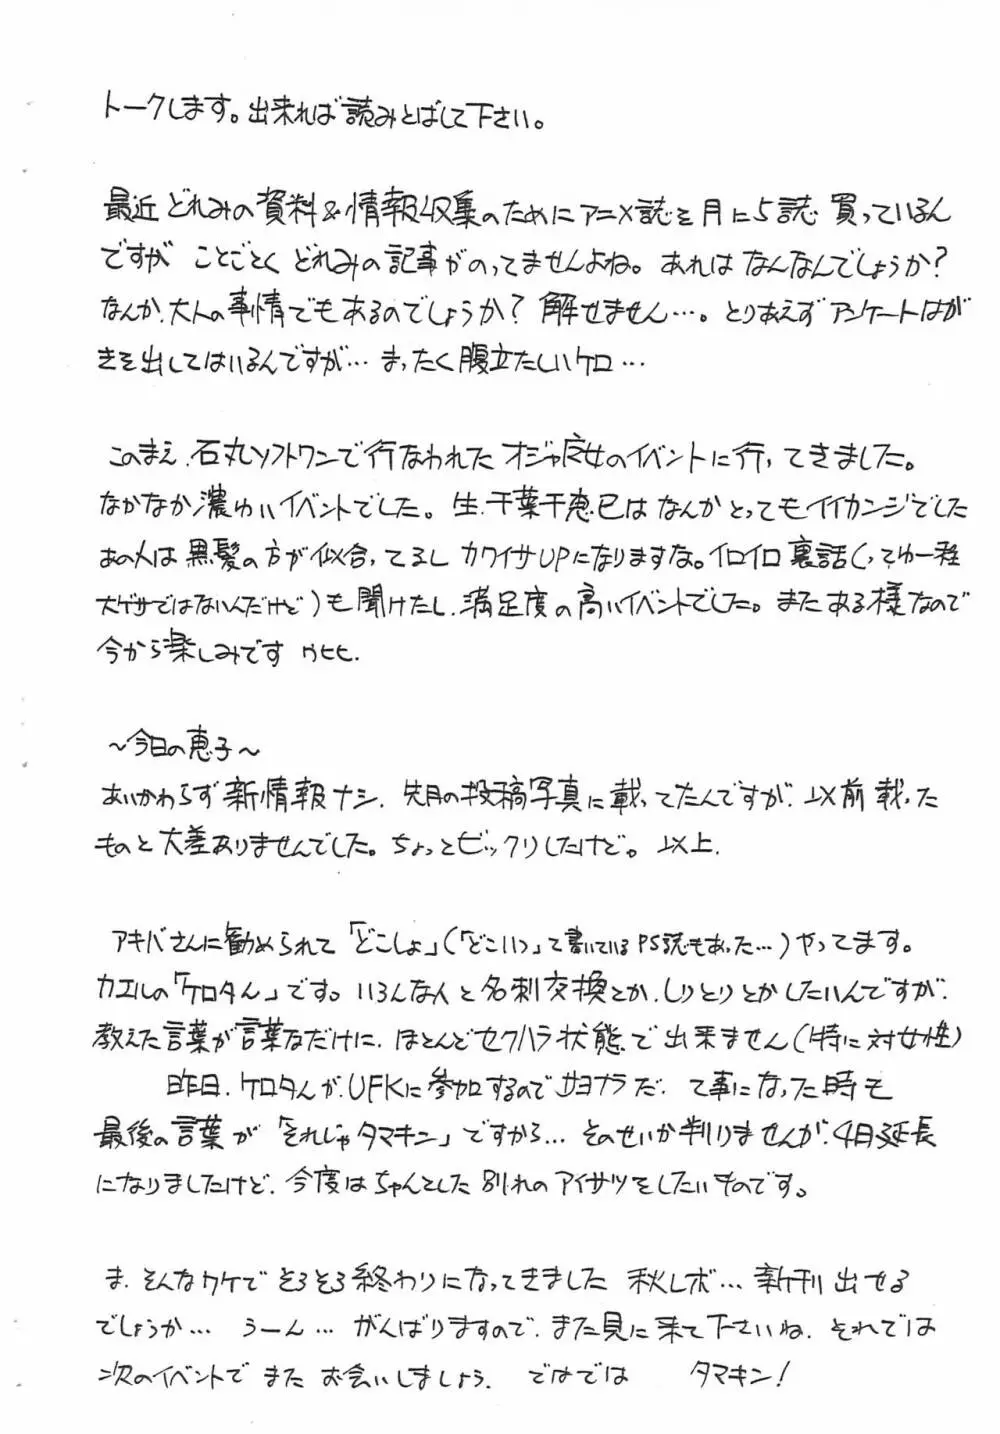 トークします。出来れば読みとばして下さい。
最近どれみの資料&情報収集のためにアニメ誌を月に5誌買っているん
ですが ことごとく どれみの記事がのってませんよね。あれはなんなんでしょうか?
なんか、大人の事情でもあるのでしょうか? 解せません…。とりあえずアンケートはが
きを出してはいるんですが… まったく腹立たしいケロ…
このまえ、石丸ソフトワンで行なわれたオジャ魔女のイベントに行ってきました。
なかなか濃ゆいイベントでした。生、千葉千恵巳はなんかとってもイイカンジでした
あの人は黒髪の方が似合ってるし カワイサUPになりますな。イロイロ裏話(ってゆー程
大ゲサではないんだけど)も聞けたし、満足度の高いイベントでした。またある様なので
今から楽しみです ウヒヒ.
~今日の恵子~
あいかわらず新情報ナシ. 先月の投稿写真に載ってたんですが、以前載った
ものと大差ありませんでした。ちょっとビックリしたけど。以上.
アキバさんに勧められて「どこしょ」(「どこいつ」って書いているPS誌もあった…)やってます。
カエルの「ケロタん」です。いろんな人と名刺交換とか、しりとりとかしたいんですが、
教えた言葉が言葉なだけに、ほとんどセクハラ状態で出来ません(特に対女性)
昨日、ケロタんが、UFKに参加するのでサヨナラだ、って事になった時も
最後の言葉が「それじゃタマキン」ですから… そのせいか判りませんが、4日延長
になりましたけど、今度はちゃんとした別れのアイサツをしたいものです。
ま、そんなワケでそろそろ終わりになってきました 秋レボ… 新刊出せる
でしょうか… うーん… がんばりますので、また見に来て下さいね. それでは
次のイベントで また お会いしましょう. ではでは タマキン!